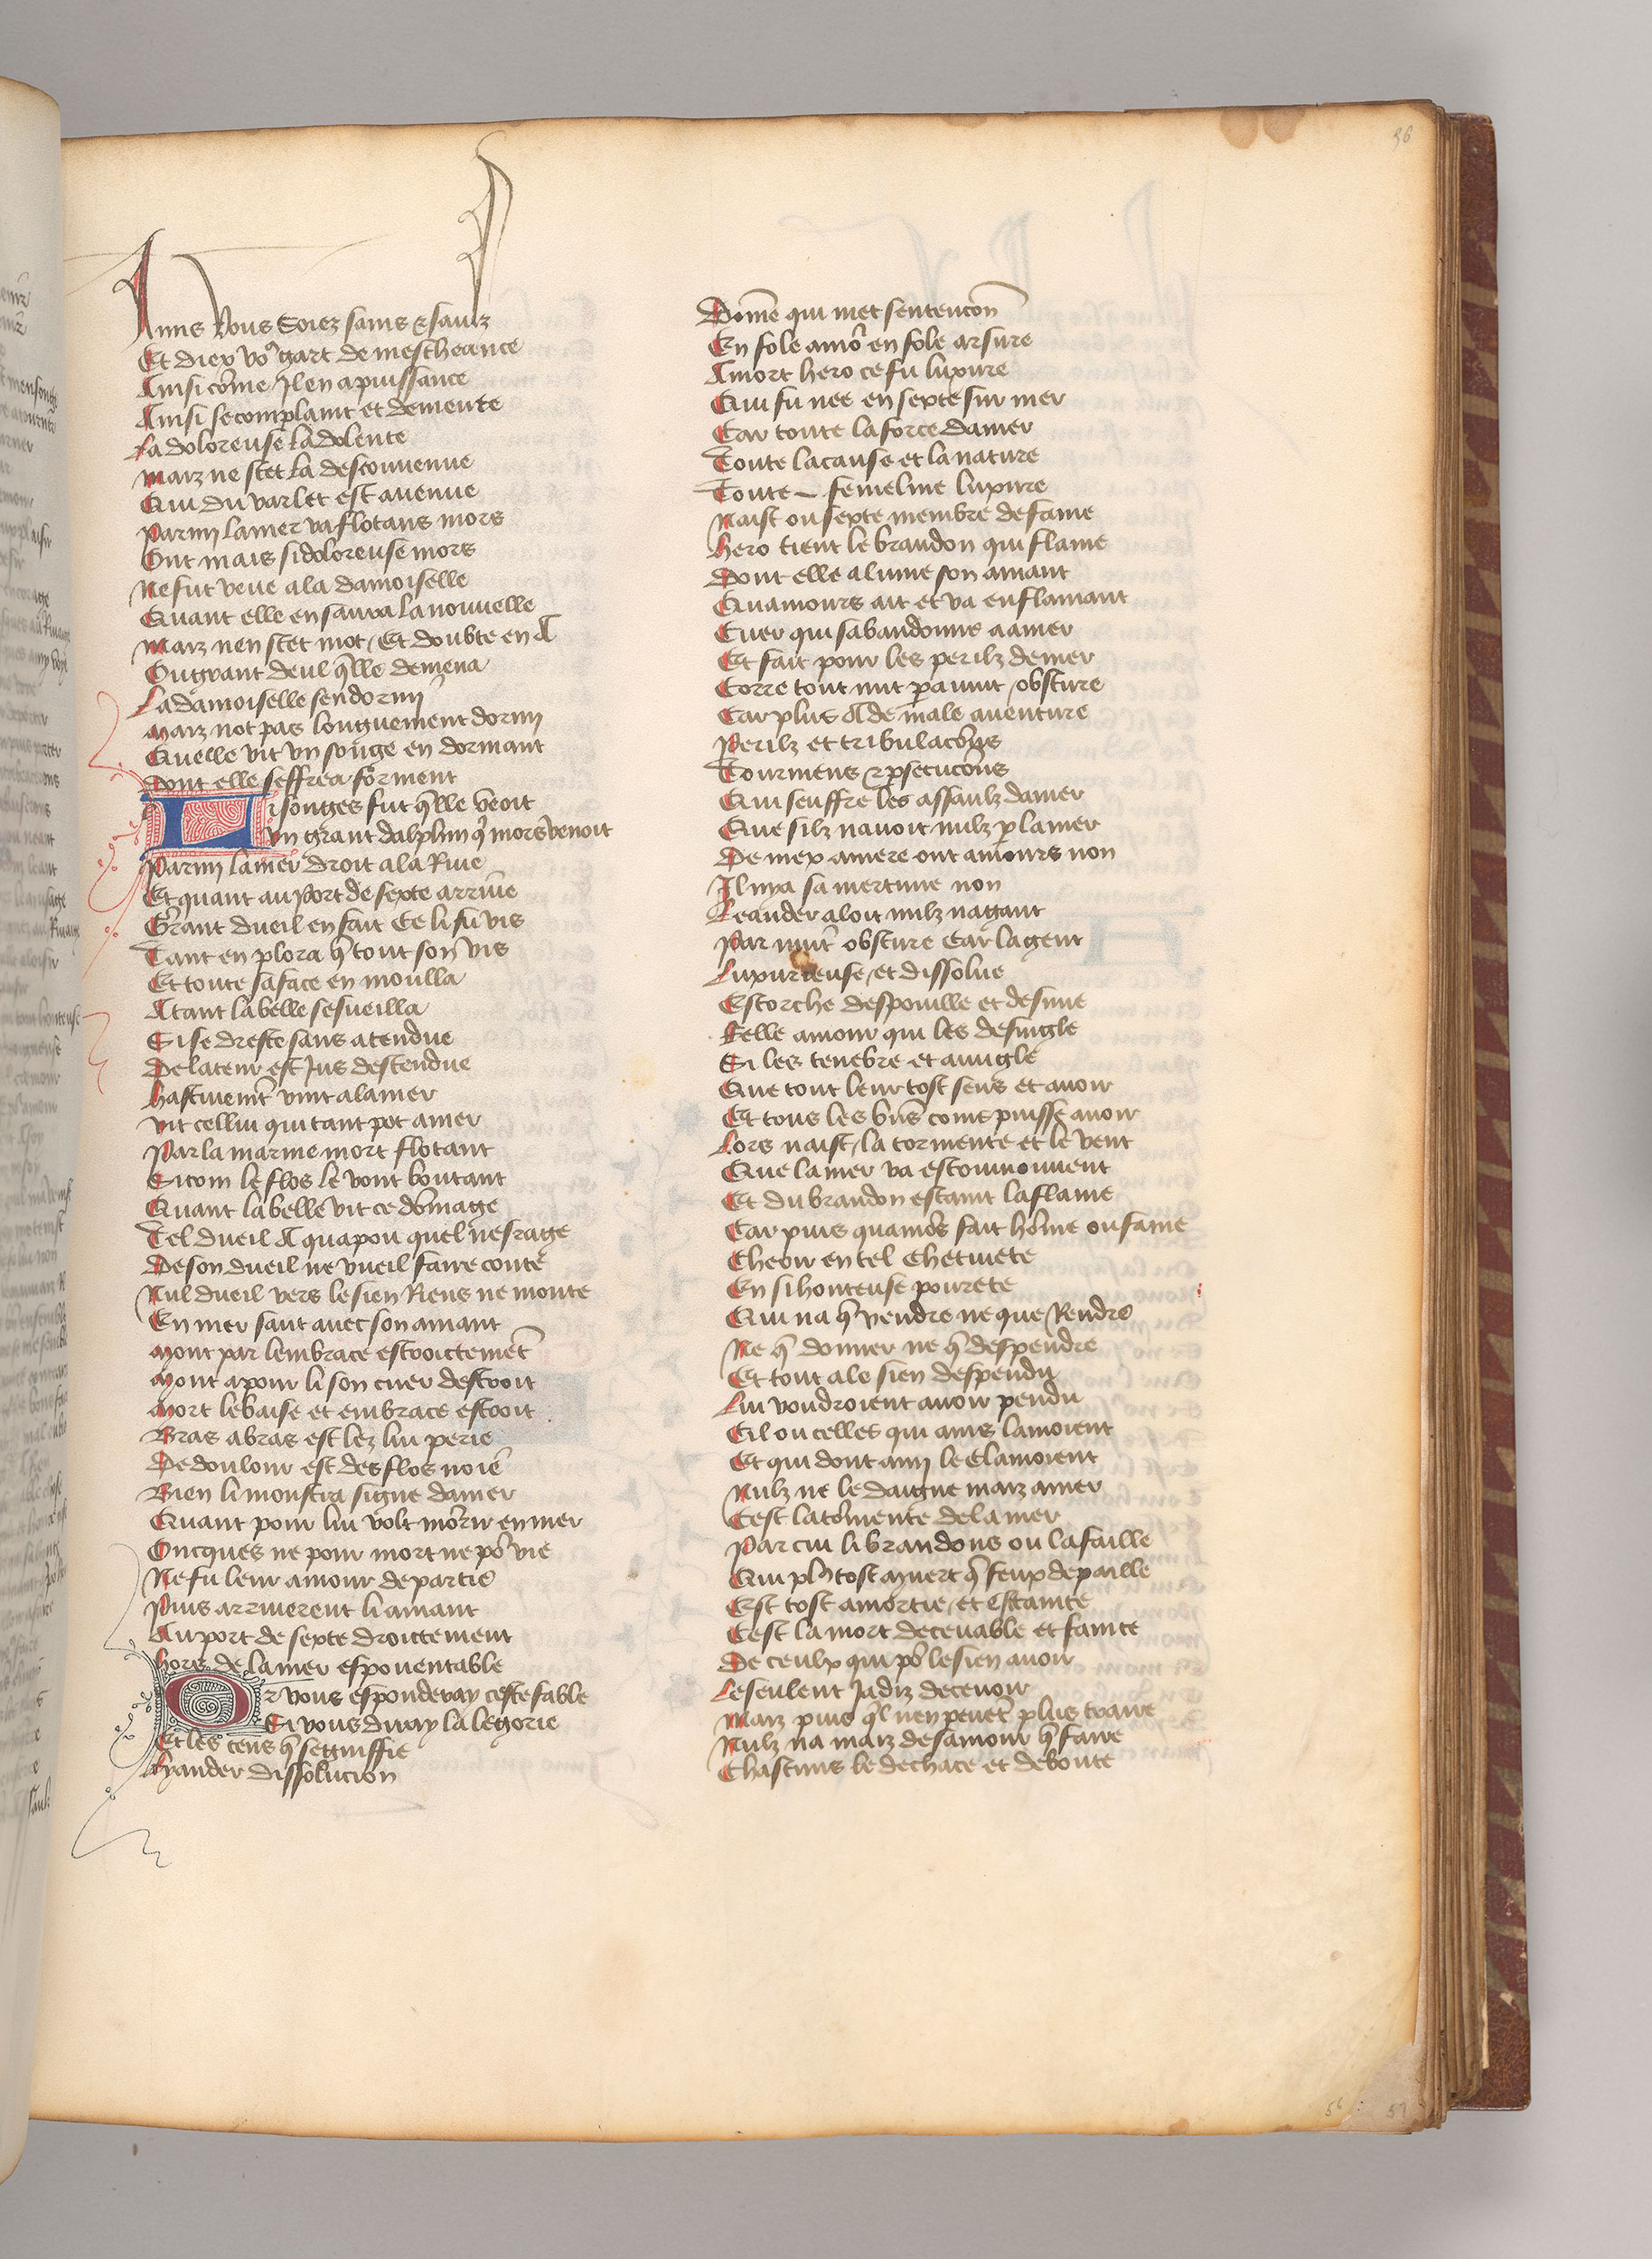 56
Amis vous soiez sains & saulz
Et diex vo9 gart de mescheance
Ainsi cõme Il en a puissance
Ainsi se complaint et demente
La doloreuse la dolente
Maiz ne scet la desconuenue
Qui du varlet est auenue
Parmy la mer va flotans mors
Ont mais si doloreuse mors
Ne fut veue a la damoiselle
Quant elle en saura la nouuelle
Maiz nen scet mot / Et doubte en A
Ou grant deul q̃lle demena
La damoiselle sendormy
Maiz not pas longuement dormy
Quelle vit vn songe en dormant
Dont elle seffrea forment
Li songes fut q̃lle veoit
vn grant dalphin q̃ mors venoit
Parmy la mer droit a la Riue
Et quant au port de sexte arriue
Grant dueil en fait Ce li fu vis
Tant en plora q̃ tout son vis
Et toute sa face en moulla
Atant la belle sesueilla
Si se dresse sans atendue
De la tour est Jus descendue
Hastiuemt̃ vint a la mer
Vit cellui qui tant pot amer
Par la marine mort flotant
Si com le flos le vont boutant
Quant la belle vit ce dõmage
Tel dueil A qua pou quel nesrage
De son dueil ne vueil faire conte
Nul dueil vers le sien Riens ne monte
En mer saut auec son amant
Mont par lembrace estroictemẽt
Mont a pour li son cuer destroit
Mort le baise et embrace estroit
Bras a bras est lez lui perie
De doulour est des flos noie
Bien li monstra signe damer
Quant pour lui volt morir en mer
Oncques ne pour mort ne po2 vie
Ne fu leur amour departie
Puis arriuerent li amant
Au port de sexte droictement
Hors de la mer espouentable
Or vous esponderay ceste fable
Si vous diray la legorie
Et les cens q̃ segniffie
Lyander dissolucion
Dõme qui met sentencõn
En fole amo2 en fole arsure
Amort hero ce fu luxure
Qui fu nee en sexte sur mer
Car toute la force damer
Toute la cause et la nature
Toute femeline luxure
Naist ou sexte membre de fame
Hero tient le brandon qui flame
Dont elle alume son amant
Quamours art et va enflamant
Cuer qui sabandonne a amer
Et fait pour les perilz de mer
Corre tout nut par nuit obscure
Car plus A de male auenture
Perilz et tribulacõns
Tourmens & p̱secucõns
Qui seuffre les assaulz damer
Que silz nauoit nulz p̱ la mer
De mer amere ont amours non
Il nya sa mertune non
Leander aloit nulz nagant
Par nuit obscure Car la gent
Luxurieuse et dissolue
Escorche despouille et desnue
Felle amour qui les desuigle
Si les tenebre et auugle
Que tout leur tost sens et auoir
Et tous les bñs come puisse auoir
Lors naist la tormente et le vent
Que la mer va escommouuent
Et du brandon estaint la flame
Car puis quamo2s fait hõme ou fame
Cheoir en tel chetiuete
En si honteuse pourete
Qui na q̃ vendre ne que Rendre
Ne q̃ donner ne q̃ despendre
Et tout a le sien despendu
Lui voudroient auoir pendu
Cil ou celles qui ains lamoient
Et qui dont amy le clamoient
Nulz ne le daigne maiz amer
Cest la tõmente de la mer
Par cui li brandons ou la faille
Qui pl9 tost amert q̃ feux de paille
Est tost amortie et estainte
Cest la mort deceuable et fainte
De ceulx qui po2 le sien auoir
Le seulent Jadiz deceuoir
Maiz puis q̃l nen peuẽt plus traire
Nulz na maiz de samour q̃ faire
Chascuns le dechace et deboute
56
57